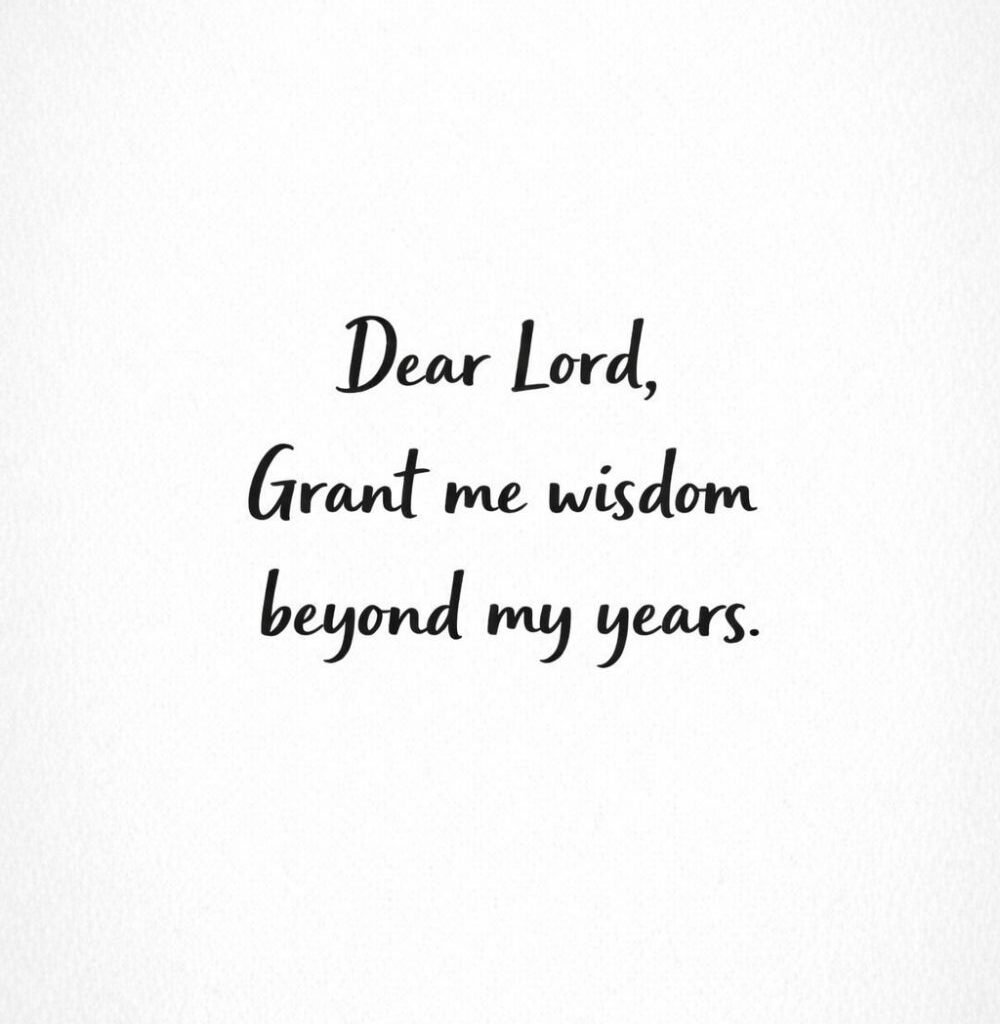 Dear Lord,
Grant me wisdom
beyond my years.